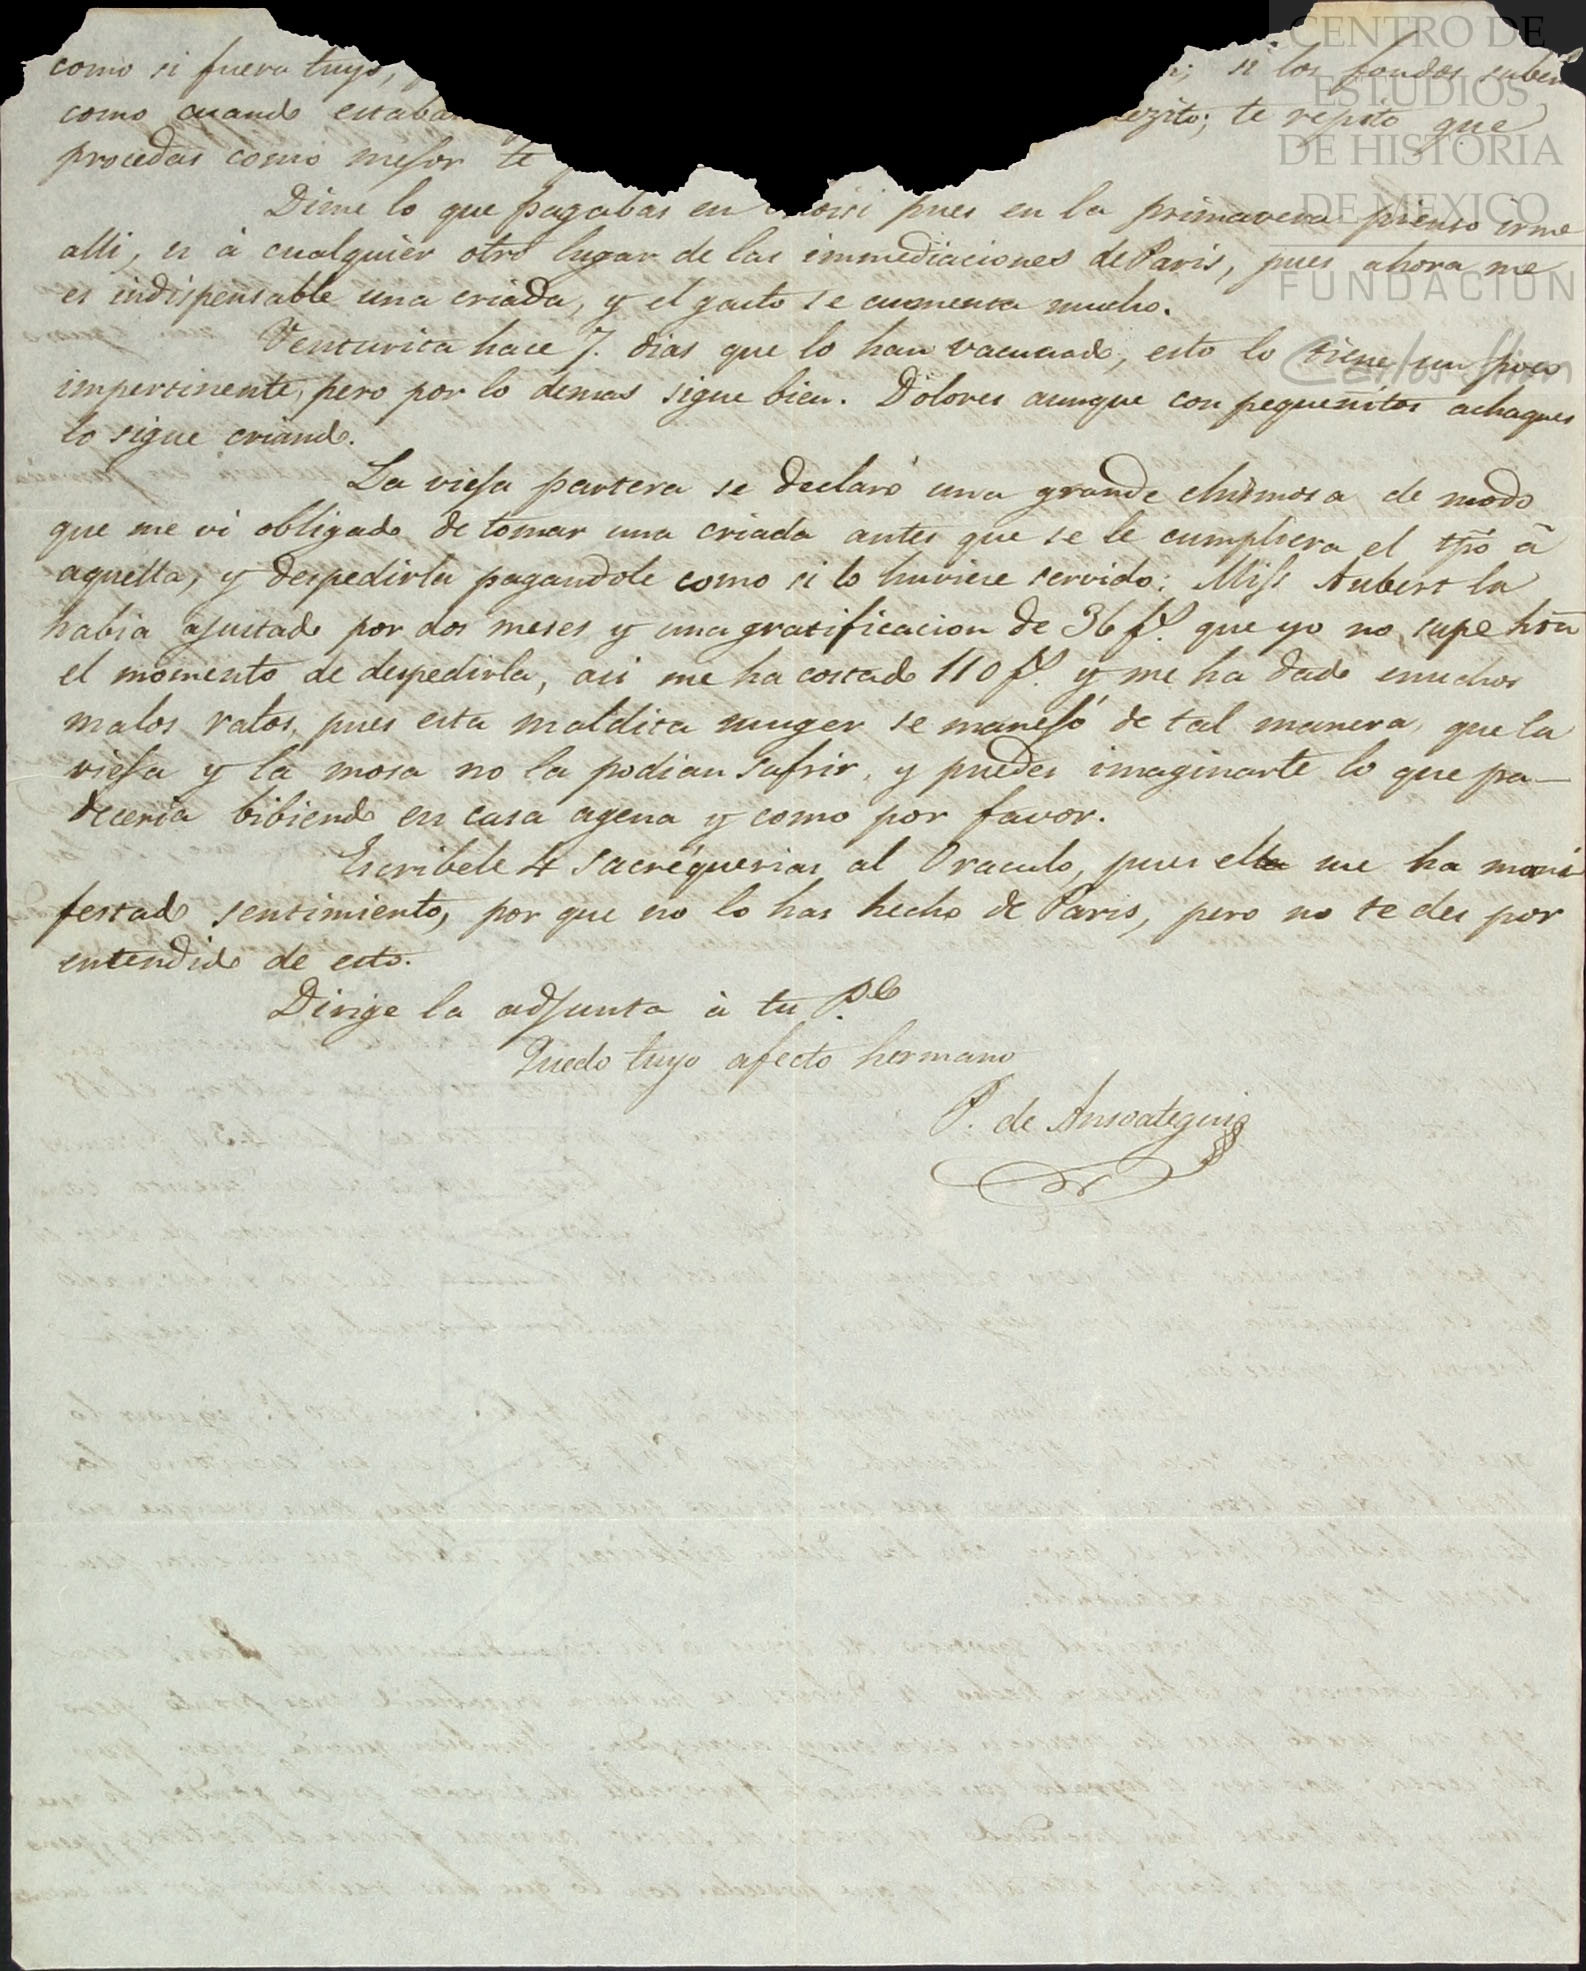 como si fuera tuyo, si los fondos suben
como cuando estaba te repito que
procedas como mejor te
Dime lo que pagabas en pues en la primavera pienso irme
alli, ó à cualquier otro lugar de las immediaciones de Paris, pues ahora me
es indispensable una criada, y el gasto se aumenta mucho.
Venturita hace 7. dias que lo han vacunado, esto lo tiene un poco
impertinente, pero por lo demas sigue bien. Dolores aunque con pequeñitos achaques
lo sigue criando.
La vieja partera se declaró una grande chismosa de modo
que me vi obligado de tomar una criada antes que se le cumpliera el tpõ à
aquella, y despedirla pagandole como si lo huviese servido: Miss Aubert la
habia ajustado por dos meses y una gratificacion de 36 f.s que yo no supe hta
el momento de despedirla, asi me ha costado 110 f.s y me ha dado muchos
malos ratos, pues esta maldita muger se manejó de tal manera, que la
vieja y la mosa no la podian sufrir, y puedes imaginarte lo que pa-
deceria bibiendo en casa agena y como por favor.
Escribele 4 sacréquerias al Oraculo, pues ella me ha mani
festado sentimiento, por que no lo has hecho de Paris, pero no te des por
entendido de esto.
Dirige la adjunta à tu P.e
Quedo tuyo afecto hermano
P. de Ansoategui
CENTRO DE
ESTUDIOS
DE HISTORIA
DE MEXICO
FUNDACION
Carlos Slim